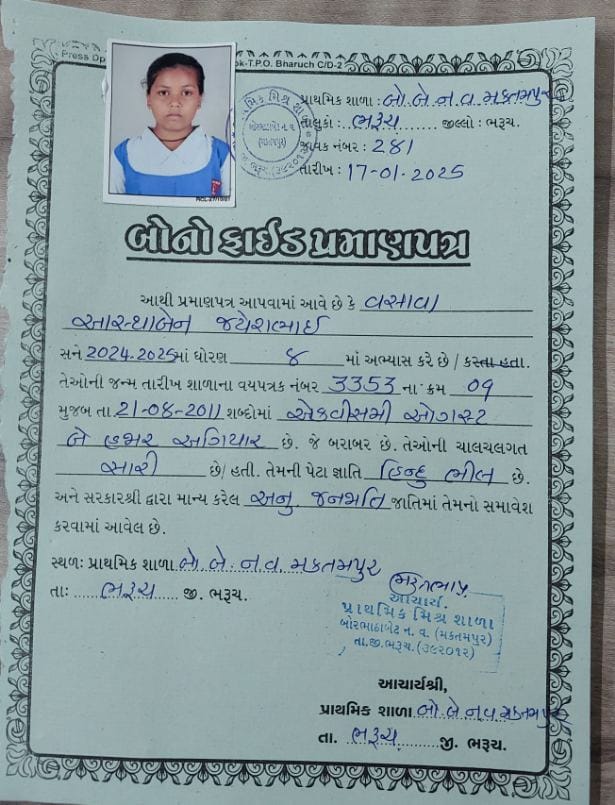 Press Dp
ok-T.P.O. Bharuch C/D-2
પ્રાથમિક શાળા : બો.બે.ન.વ. મક્તમપુર
તાલુકો : ભરૂચ જીલ્લો : ભરૂચ.
જાવક નંબર : 281
તારીખ : 17-01-2025
બોનો ફાઈડ પ્રમાણપત્ર
આથી પ્રમાણપત્ર આપવામાં આવે છે કે વસાવા
આસ્થાબેન જયેશભાઈ
સને 2024-2025માં ધોરણ ૪ માં અભ્યાસ કરે છે / કરતા હતા.
તેઓની જન્મ તારીખ શાળાના વયપત્રક નંબર 3353 ના ક્રમ 09
મુજબ તા. 21-08-2011 શબ્દોમાં એકવીસમી ઓગસ્ટ
બે હજાર અગિયાર છે. જે બરાબર છે. તેઓની ચાલચલગત
સારી છે/હતી. તેમની પેટા જ્ઞાતિ હિન્દુ ભીલ છે.
અને સરકારશ્રી દ્વારા માન્ય કરેલ અનુ. જનજાતિ જાતિમાં તેમનો સમાવેશ
કરવામાં આવેલ છે.
સ્થળ: પ્રાથમિક શાળા બો.બે.ન.વ. મક્તમપુર
તાઃ ભરૂચ જી. ભરૂચ.
આચાર્ય.
પ્રાથમિક મિશ્ર શાળા
બોરભાઠાબેટ ન. વ. (મક્તમપુર)
તા.જી.ભરૂચ.(૩૯૨૦૧૨)
આચાર્યશ્રી,
પ્રાથમિક શાળા બો.બે.ન.વ. મક્તમપુર
તા. ભરૂચ જી. ભરૂચ.